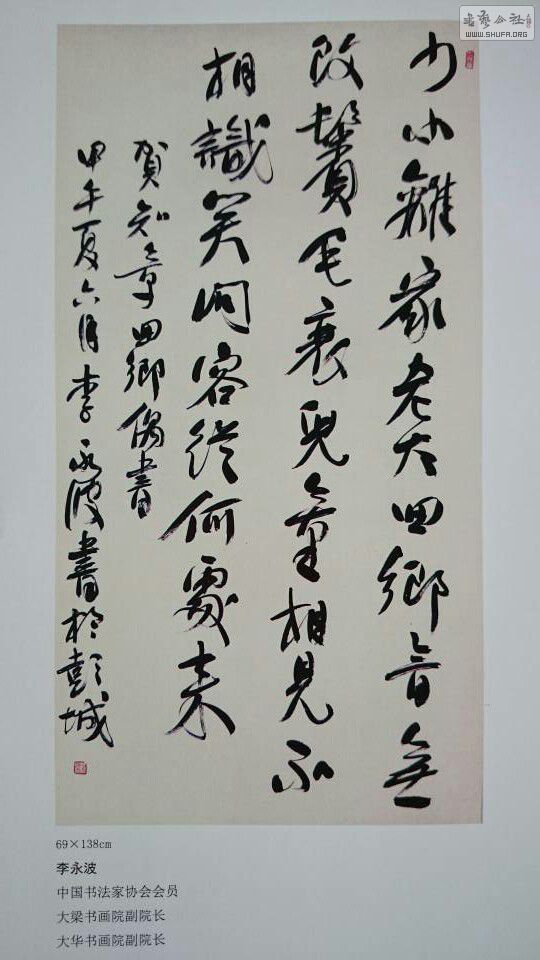 書藝公社
WWW.SHUFA.ORG
少小離家老大回鄉音無
改鬢毛衰兒童相見不
相識笑問容從何處来
賀知章回鄉偶書
甲午夏六月李永波書於彭城
69×138cm
李永波
中国书法家协会会员
大梁书画院副院长
大华书画院副院长